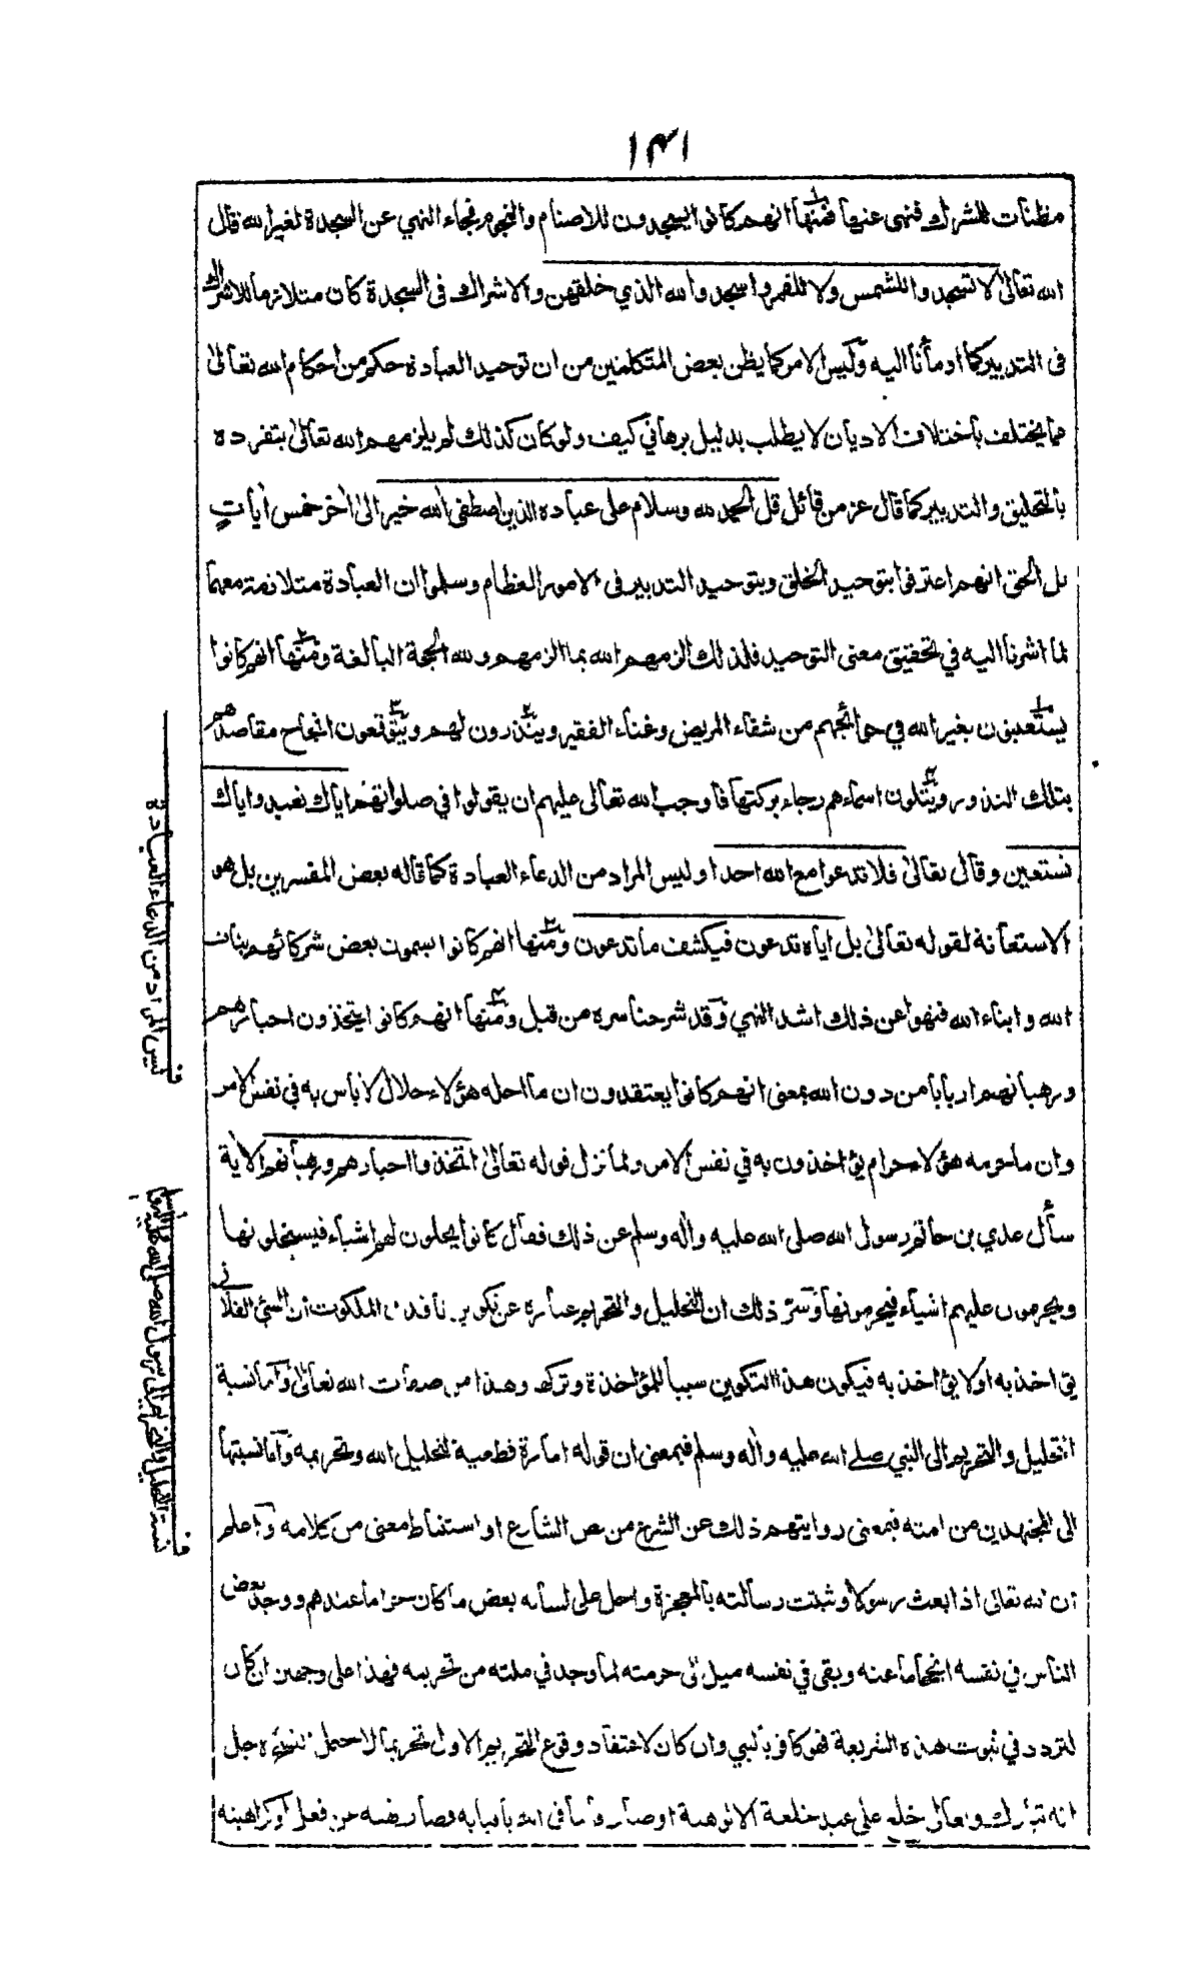 ١٣١
مظنات للشرك فنهى عنها فمنها انهم كانوا ليسجدون للاصنام والنجوم فجاء النهي عن السجدة لغير الله قال
الله تعالىٰ لا تسجدوا للشمس ولا للقمر واسجدوا لله الذي خلقهن والاشراك في السجدة كان متلازما للاشراك
فى التدبير كما اومأنا اليه وليس الامر كما يظن بعض المتكلمين من ان توحيد العبادة حكم من احكام الله تعالىٰ
مما يختلف باختلاف الاديان لا يطلب بدليل برهاني كيف ولو كان كذلك لم يلزمهم الله تعالىٰ بتفرده
بالتخليق والتدبير كما قال عز من قائل قل الحمد لله وسلام على عباده الذين اصطفى آلله خير الىٰ اٰخر خمس اٰيات
بل الحق انهم اعترفوا بتوحيد الخلق وبتوحيد التدبير فى الامور العظام وسلموا ان العبادة متلازمة معهما
لما اشرنا اليه في تحقيق معنى التوحيد فلذلك الزمهم الله بما الزمهم ولله الحجة البالغة ومنها انهم كانوا
يستعينون بغير الله في حوائجهم من شفاء المريض وغناء الفقير وينذرون لهم ويتوقعون انجاح مقاصدهم
بتلك النذور ويتلون اسماءهم رجاء بركتها فاوجب الله تعالى عليهم ان يقولوا في صلواتهم اياك نعبد واياك
نستعين وقال تعالىٰ فلا تدعوا مع الله احدا وليس المراد من الدعاء العبادة كما قاله بعض المفسرين بل هو
الاستعانة لقوله تعالىٰ بل اياه تدعون فيكشف ما تدعون ومنها انهم كانوا يسمون بعض شركائهم بنات
الله وابناء الله فنهوا عن ذلك اشد النهي وقد شرحنا سره من قبل ومنها انهم كانوا يتخذون احبارهم
ورهبانهم اربابا من دون الله بمعنى انهم كانوا يعتقدون ان ما احله هؤلاء حلال لا بأس به في نفس الامر
وان ما حرمه هؤلاء حرام يؤاخذون به في نفس الامر ولما نزل قوله تعالىٰ اتخذوا احبارهم ورهبانهم الاٰية
سأل عدي بن حاتم رسول الله صلى الله عليه واٰله وسلم عن ذلك فقال كانوا يحلون لهم اشياء فيستحلونها
ويحرمون عليهم اشياء فيحرمونها وسر ذلك ان التحليل والتحريم عبارة عن تكوين نافذ في الملكوت ان الشئ الفلاني
يؤاخذ به او لا يؤاخذ به فيكون هذا التكوين سببا للمؤاخذة وتركه وهذا من صفات الله تعالىٰ واما نسبة
التحليل والتحريم الى النبي صلے الله عليه واٰله وسلم فبمعنى ان قوله امارة قطعية لتحليل الله وتحريمه واما نسبتها
الى المجتهدين من امته فبمعنى روايتهم ذلك عن الشرع من نص الشارع او استنباط معنى من كلامه واعلم
ان الله تعالى اذا بعث رسولا وثبتت رسالته بالمعجزة واحل على لسانه بعض ما كان حراما عندهم ووجد بعض
الناس في نفسه انجماما عنه وبقى في نفسه ميل الى حرمته لما وجد في ملته من تحريمه فهذا على وجهين ان كان
لتردد في ثبوت هذه الشريعة فهو كافر بالنبي وان كان لاعتقاد وقوع التحريم الاول تحريما لا يحتمل النسخ لاجل
انه تبارك وتعالى خلع على عبد خلعة الالوهية او صار فانيا في الله باقيا به فصار نهيه عن فعل او كراهيته
ف ليس المراد من الدعاء العبادة
ف نسبة التحليل والتحريم الى رسول الله صلى الله عليه واٰله وسلم